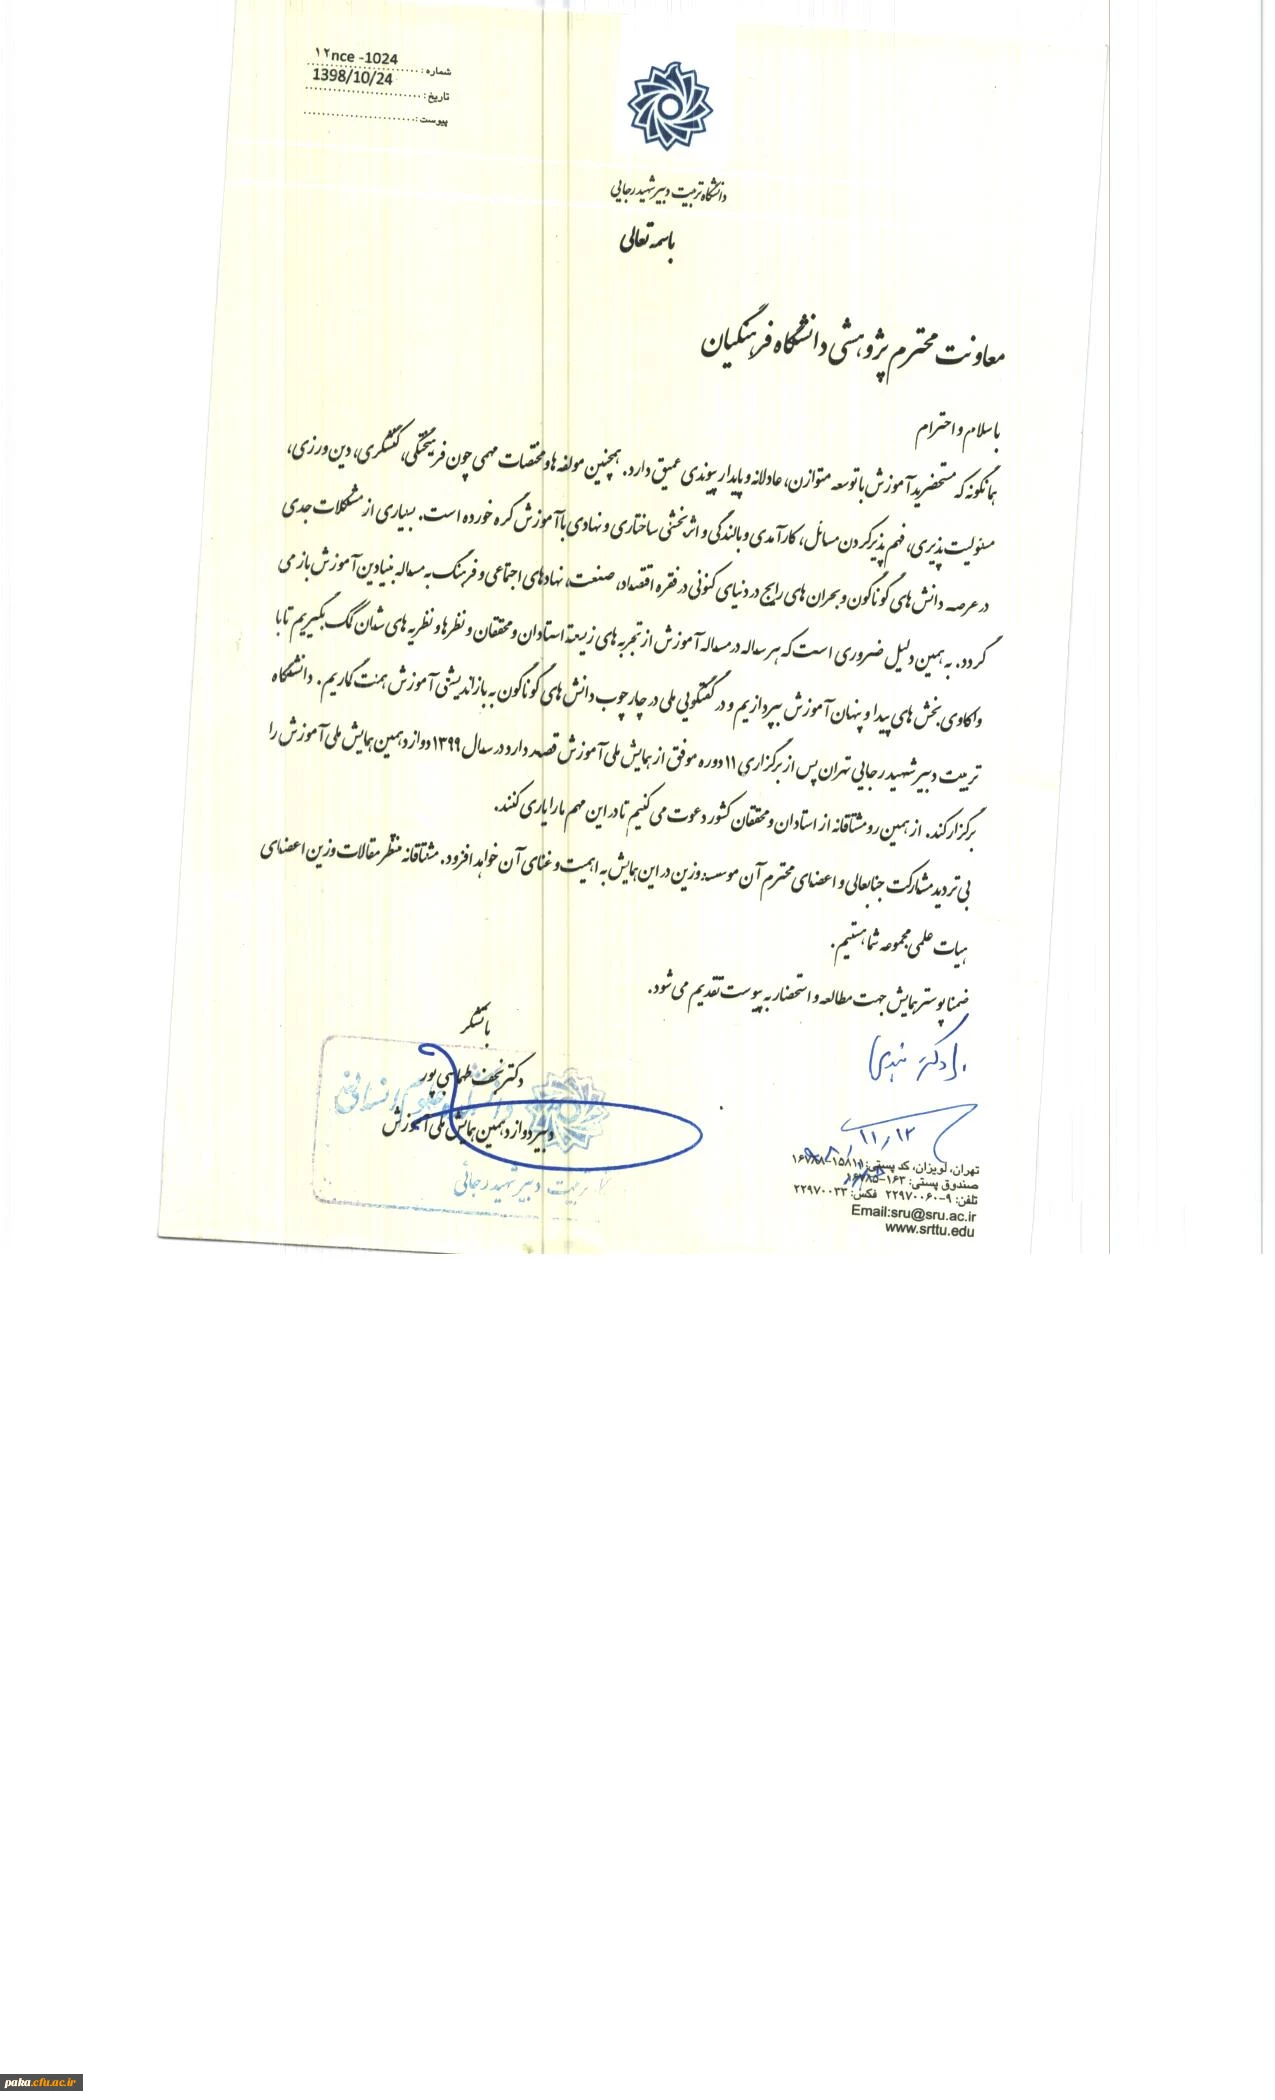 شماره : ۱۲nce -1024
تاریخ: 1398/10/24
پیوست :
دانشگاه تربیت دبیر شهید رجایی
باسمه تعالی
معاونت محترم پژوهشی دانشگاه فرهنگیان
با سلام و احترام
همانگونه که مستحضرید آموزش با توسعه متوازن، عادلانه و پایدار پیوندی عمیق دارد. همچنین مولفه ها و مختصات مهمی چون فرهیختگی، کنشگری، دین ورزی،
مسئولیت پذیری، فهم پذیر کردن مسائل، کارآمدی و بالندگی و اثربخشی ساختاری و نهادی با آموزش گره خورده است. بسیاری از مشکلات جدی
در عرصه دانش های گوناگون و بحران های رایج در دنیای کنونی در فقره اقتصاد، صنعت، نهادهای اجتماعی و فرهنگ به مساله بنیادین آموزش باز می
گردد. به همین دلیل ضروری است که هرساله در مساله آموزش از تجربه های زیسته استادان و محققان و نظرها و نظریه های شان کمک بگیریم تا با
واکاوی بخش های پیدا و پنهان آموزش بپردازیم و در گفتگویی ملی در چارچوب دانش های گوناگون به بازاندیشی آموزش همت گماریم. دانشگاه
تربیت دبیر شهید رجایی تهران پس از برگزاری ۱۱ دوره موفق از همایش ملی آموزش قصد دارد در سال ۱۳۹۹ دوازدهمین همایش ملی آموزش را
برگزار کند. از همین رو مشتاقانه از استادان و محققان کشور دعوت می کنیم تا در این مهم ما را یاری کنند.
بی تردید مشارکت جنابعالی و اعضای محترم آن موسسه وزین در این همایش به اهمیت و غنای آن خواهد افزود. مشتاقانه منتظر مقالات وزین اعضای
هیات علمی مجموعه شما هستیم.
ضمنا پوستر همایش جهت مطالعه و استحضار به پیوست تقدیم می شود.
با تشکر
دکتر نجف طهماسبی پور
دبیر دوازدهمین همایش ملی آموزش
علوم انسانی
تربیت دبیر شهید رجائی
دکتر
۱۱٫۱۲
تهران، لویزان، کد پستی:
صندوق پستی: ۱۶۳-۱۶۷۸۵
تلفن: ۹-۲۲۹۷۰۰۶۰ فکس: ۲۲۹۷۰۰۳۳
Email:sru@sru.ac.ir
www.srttu.edu
paka.cfu.ac.ir